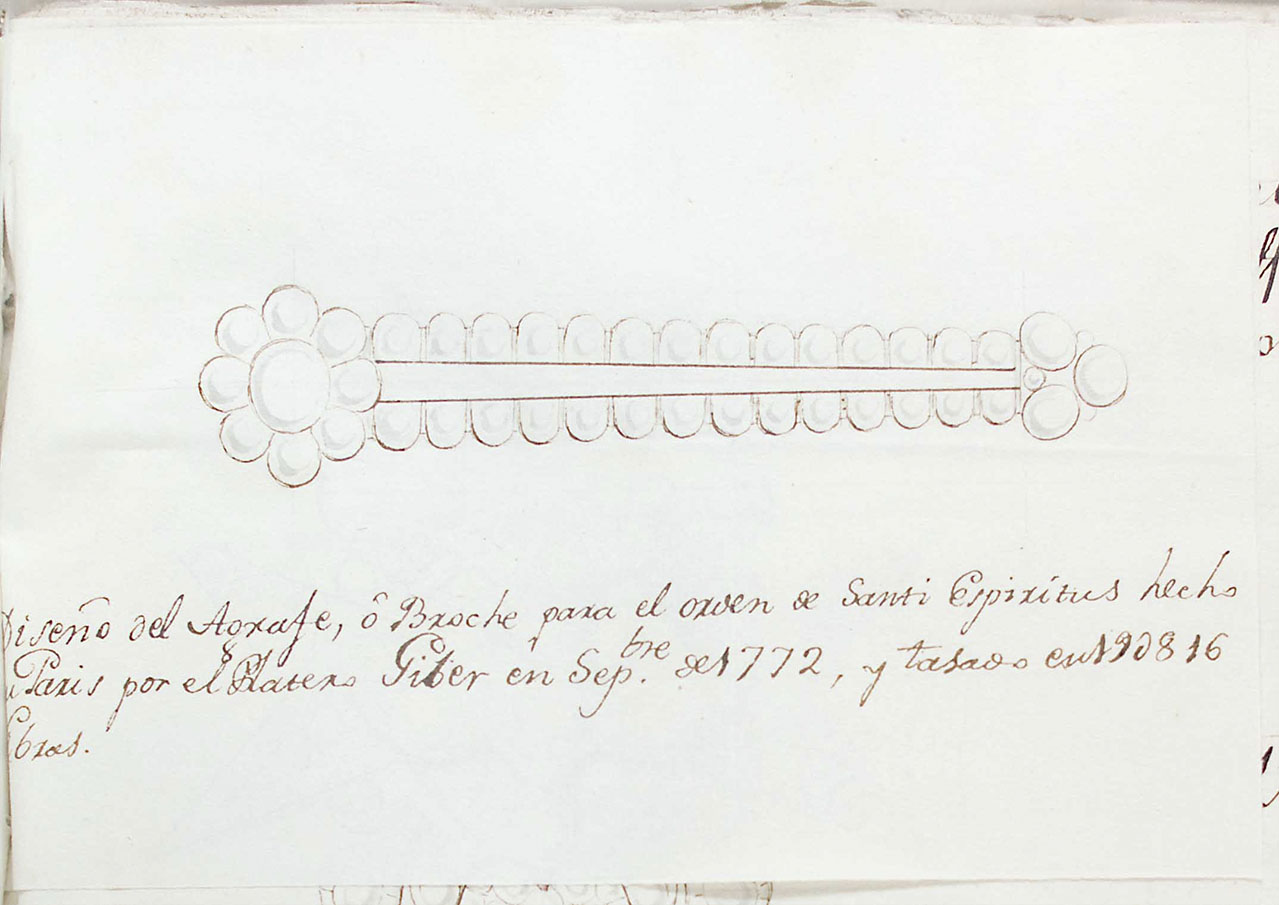 Diseño del Agrafe, ô Broche para el orden de Santi Espiritus hecho
Paris por el Platero Giber en Sep.bre de 1772, y tasado en 19816
Libras.